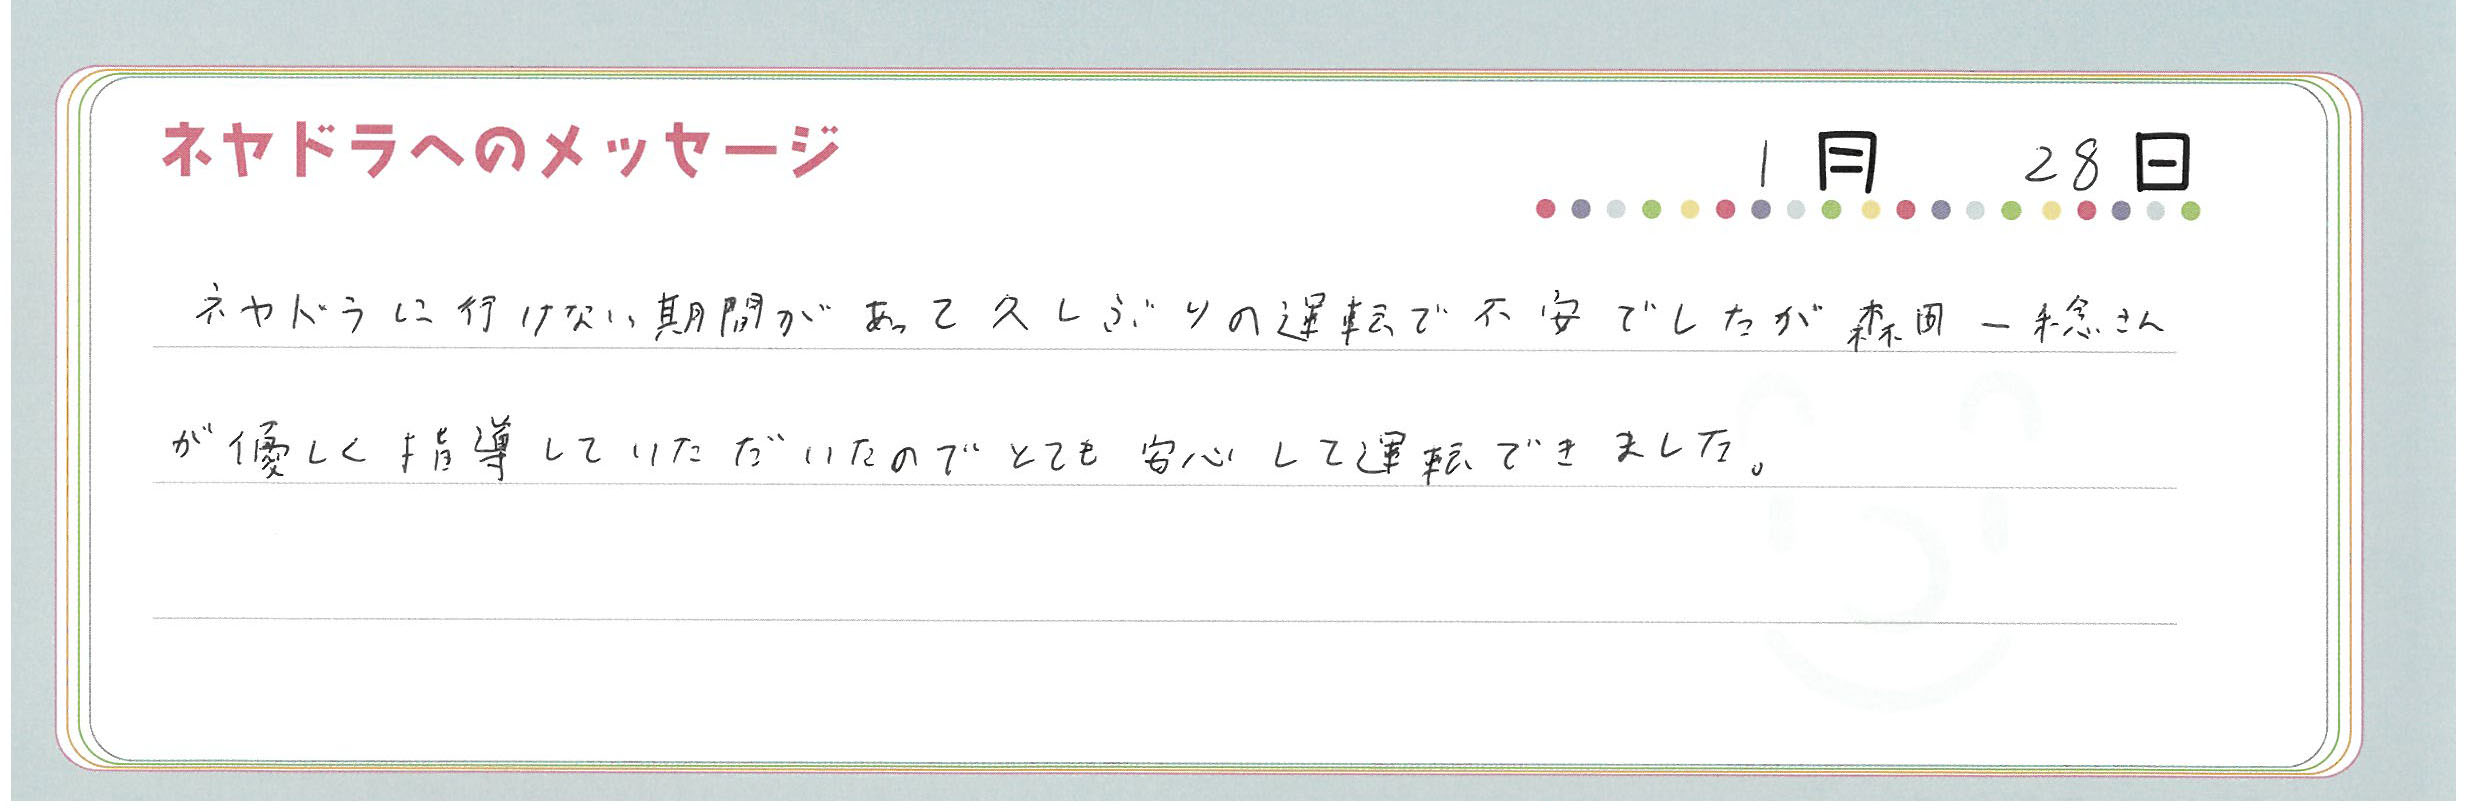 ネヤドラへのメッセージ
1月 28日
ネヤドラに行けない期間があって久しぶりの運転で不安でしたが森田一稔さん
が優しく指導していただいたのでとても安心して運転できました。